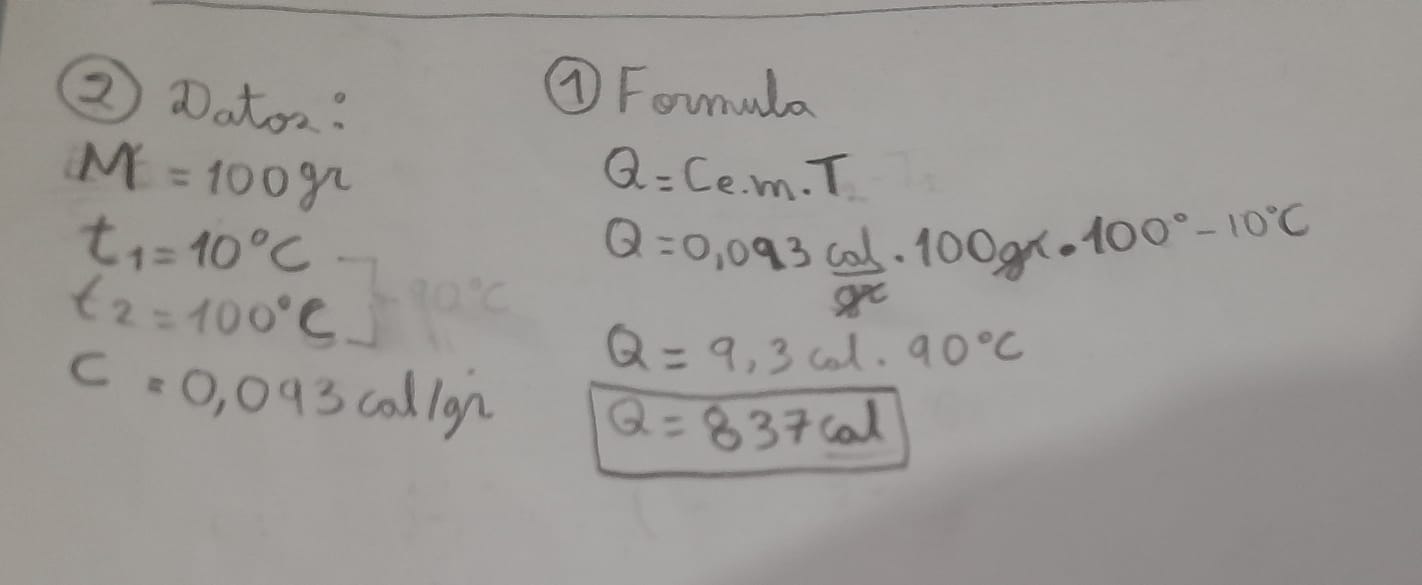 ② Datos:
M = 100gr
t₁ = 10°C
t₂ = 100°C } 90°C
C = 0,093 cal/gr
① Formula
Q = Ce.m.T
Q = 0,093 cal/gr . 100gr . 100° - 10°C
Q = 9,3 cal . 90°C
Q = 837 cal